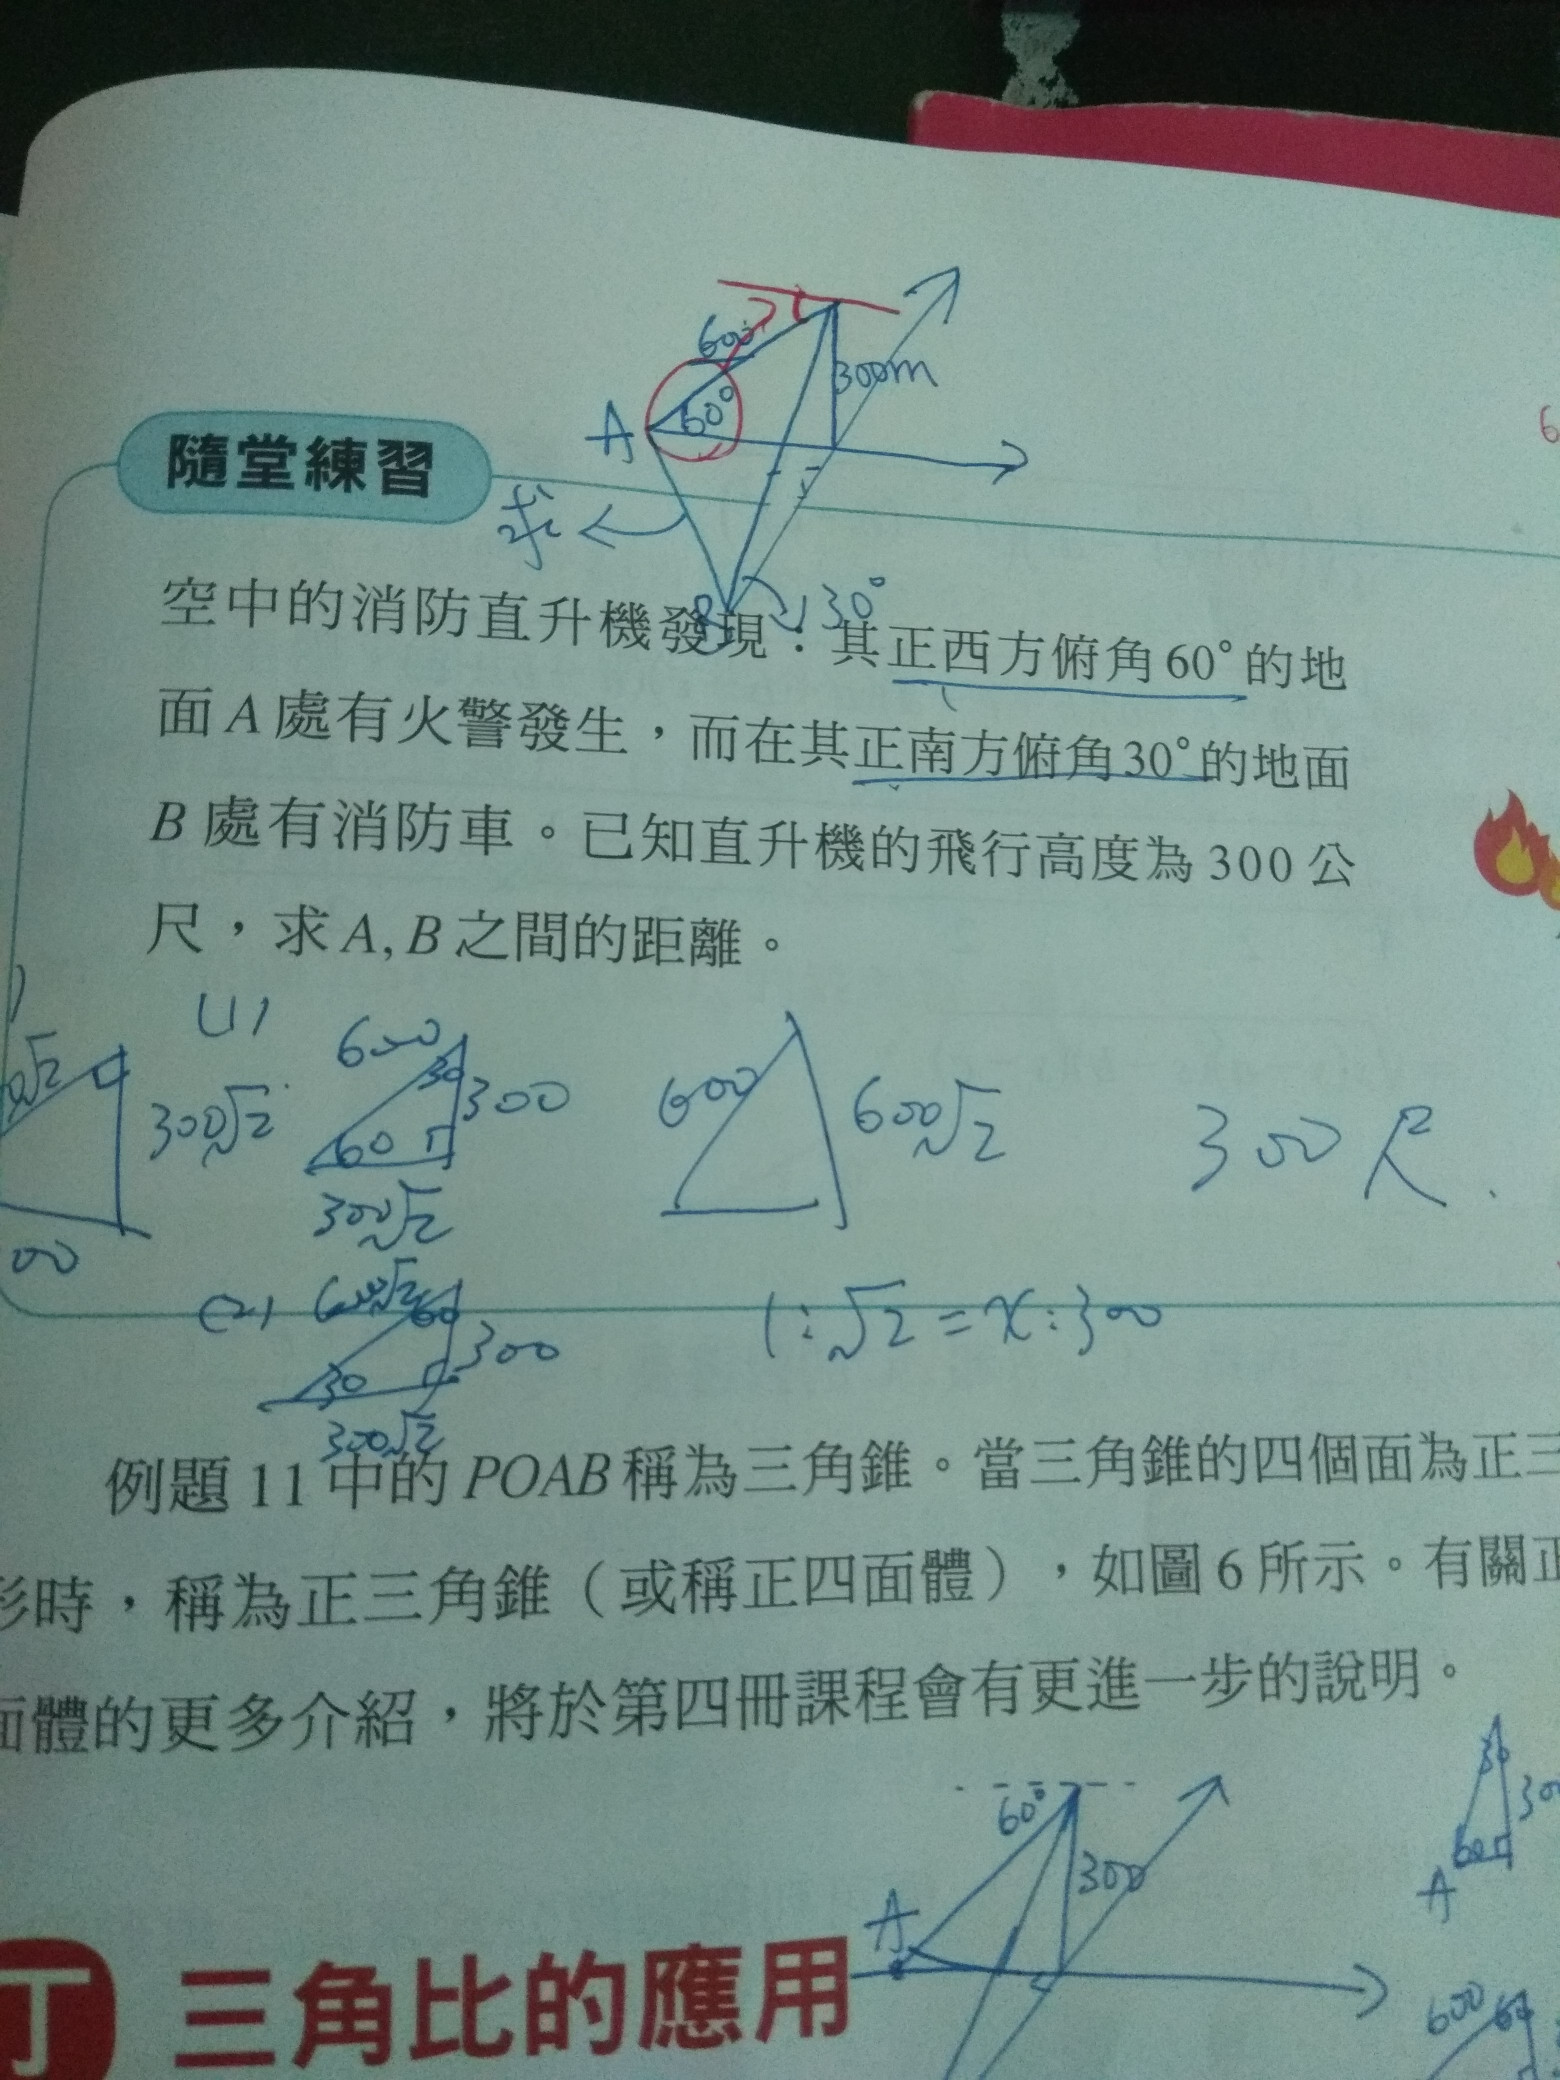 600
300m
60°
A
隨堂練習
求
B
30°
空中的消防直升機發現：其正西方俯角60°的地
面A處有火警發生，而在其正南方俯角30°的地面
B處有消防車。已知直升機的飛行高度為300公
尺，求A, B之間的距離。
(1)
600
30
300
60
300√2
300√2
600
600√2
300尺.
(2)
600√2
60
300
30
300√2
1:√2=x:300
例題11中的POAB稱為三角錐。當三角錐的四個面為正三
形時，稱為正三角錐（或稱正四面體），如圖6所示。有關正
面體的更多介紹，將於第四冊課程會有更進一步的說明。
60°
300
A
30
60
A
600
丁 三角比的應用